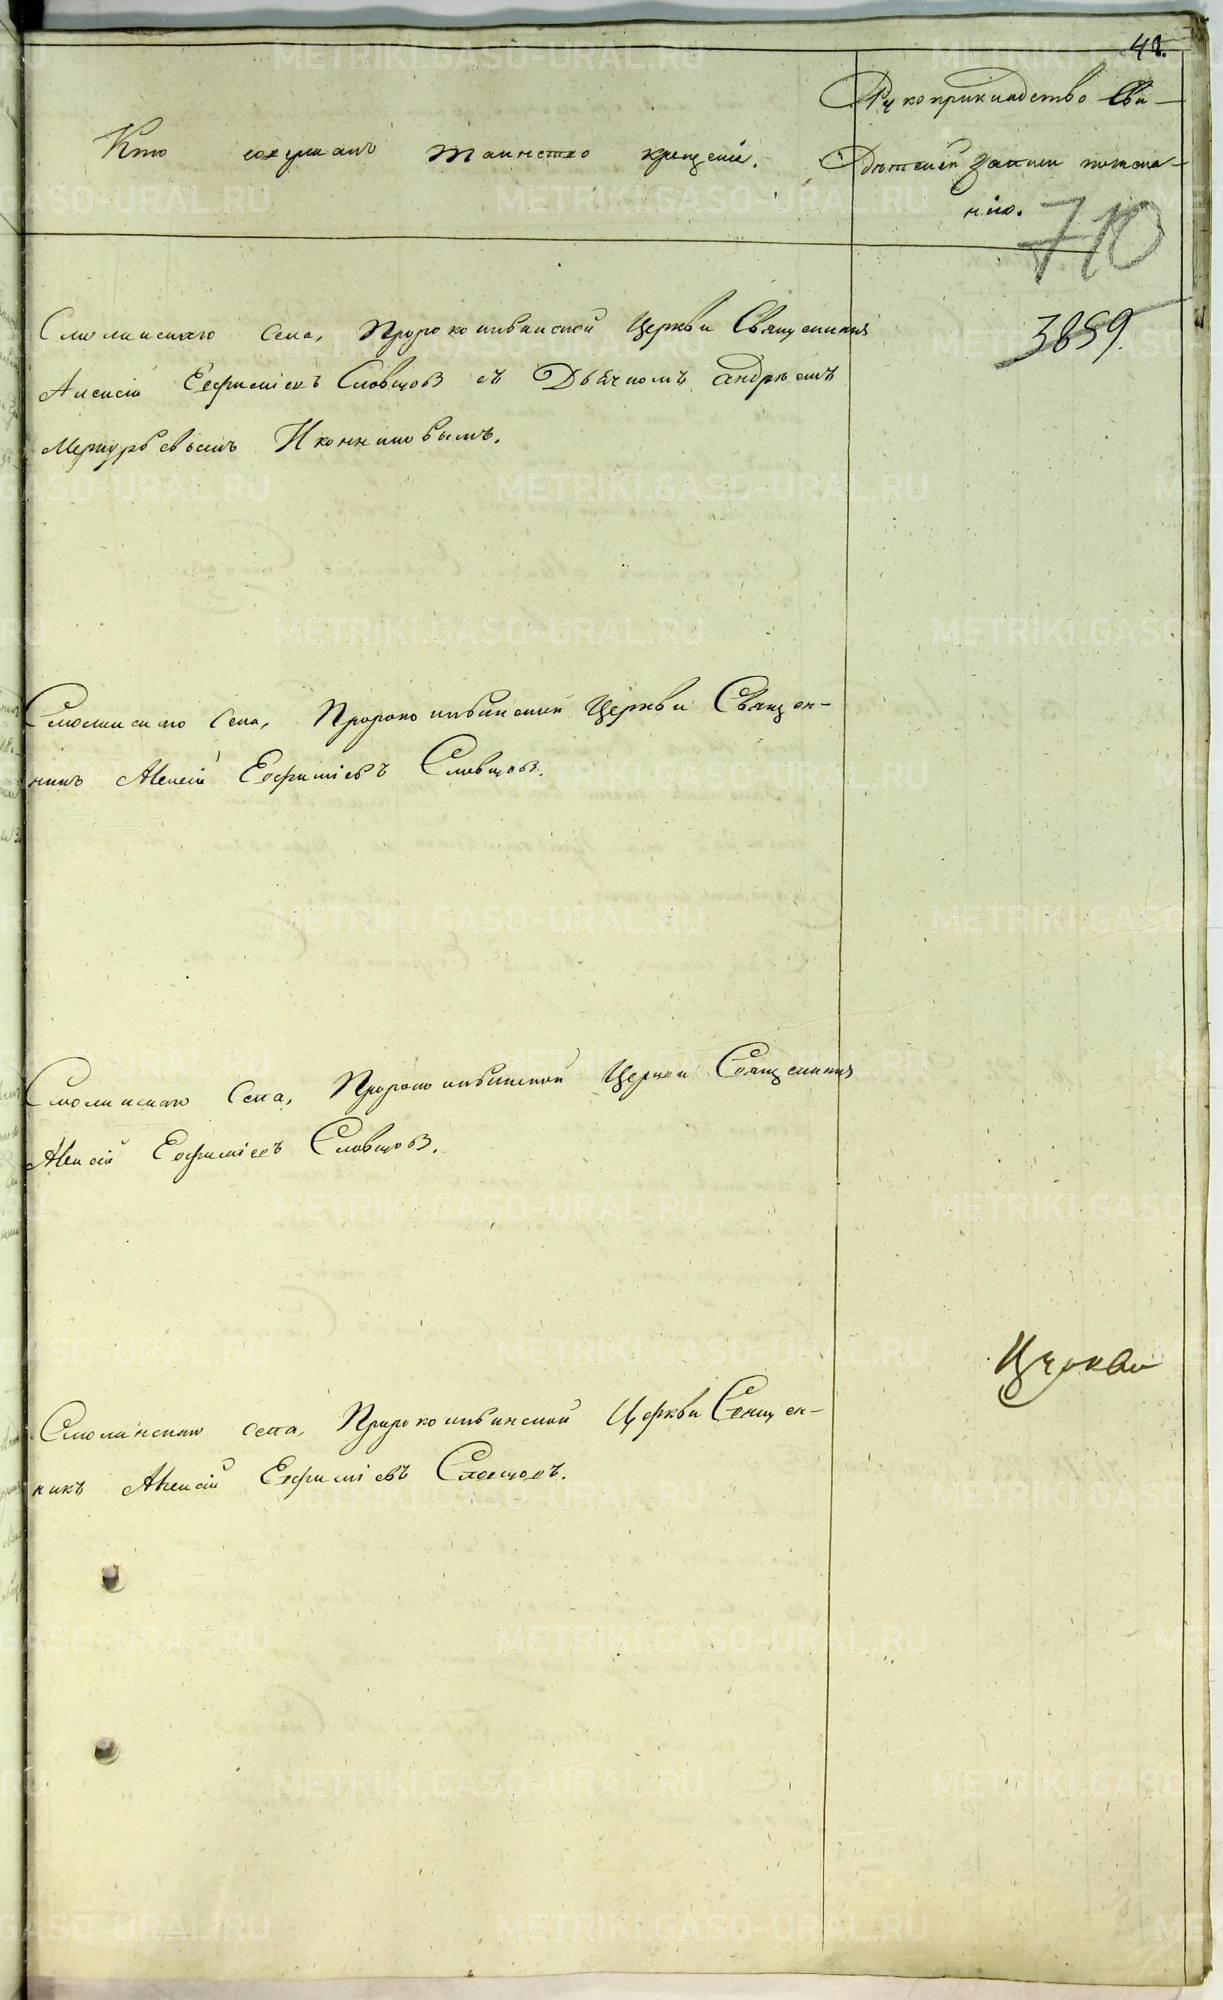 Кто совершалъ таинство крещенія.
Рукоприкладство сви-
дѣтелей записи по жела-
нію.
710
3859.
Смолинскаго села, Пророкоильинской Церкви Священникъ
Алексій Евфиміевъ Словцовъ съ Дьячкомъ Андреемъ
Меркурьевымъ Иконниковымъ.
Смолинскаго Села, Пророкоильинской Церкви Священ-
никъ Алексій Евфиміевъ Словцовъ.
Смолинскаго Села, Пророкоильинской Церкви Священникъ
Алексій Евфиміевъ Словцовъ.
Церкви
Смолинскаго села, Пророкоильинской Церкви Священ-
никъ Алексій Евфиміевъ Словцовъ.
METRIKI.GASO-URAL.RU